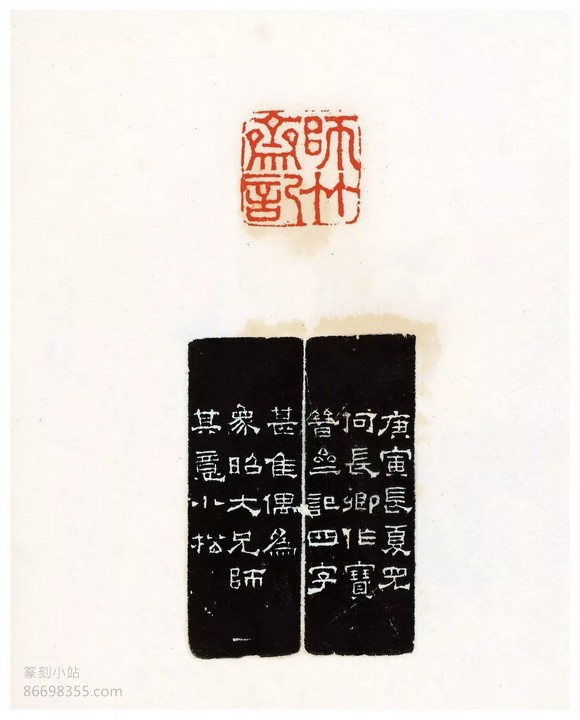 師竹
齋記
庚寅長夏見
何長卿作寶
晉亝記四字
甚佳偶為
昭大兄師
其意小松
篆刻小站
86698355.com